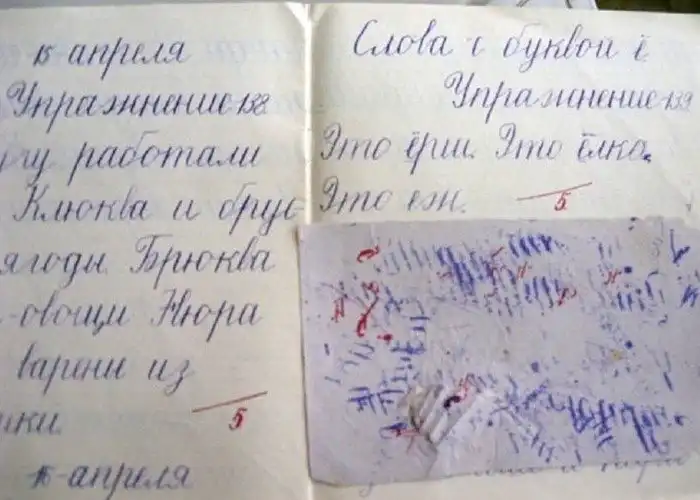 15 апреля
Упражнение 138.
лугу работали
Клюква и брус-
ягоды. Брюква
-овощи Нюра
варени из
ики.
5
16 апреля
Слова с буквой ё
Упражнение 139
Это ёрш. Это ёлка.
Это еж.
5